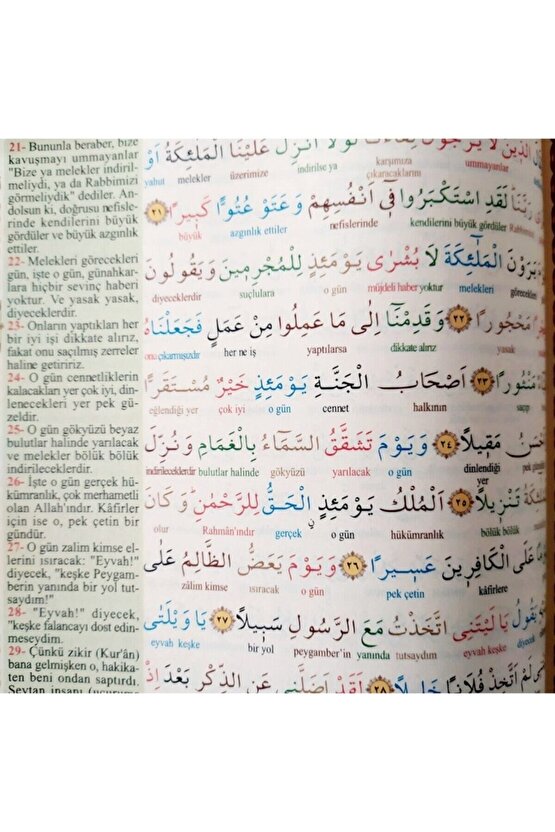 21- Bununla beraber, bize
kavuşmayı ummayanlar
"Bize ya melekler indiril-
meliydi, ya da Rabbimizi
görmeliydik" dediler. An-
dolsun ki, doğrusu nefisle-
rinde kendilerini büyük
gördüler ve büyük azgınlık
ettiler.
22- Melekleri görecekleri
gün, işte o gün, günahkar-
lara hiçbir sevinç haberi
yoktur. Ve yasak yasak,
diyeceklerdir.
23- Onların yaptıkları her
bir iyi işi dikkate alırız,
fakat onu saçılmış zerreler
haline getiririz.
24- O gün cennetliklerin
kalacakları yer çok iyi, din-
lenecekleri yer pek gü-
zeldir.
25- O gün gökyüzü beyaz
bulutlar halinde yarılacak
ve melekler bölük bölük
indirileceklerdir.
26- İşte o gün gerçek hü-
kümranlık, çok merhametli
olan Allah'ındır. Kâfirler
için ise o, pek çetin bir
gündür.
27- O gün zalim kimse el-
lerini ısıracak: "Eyvah!"
diyecek, "keşke Peygam-
berin yanında bir yol tut-
saydım!"
28- "Eyvah!" diyecek,
"keşke falancayı dost edin-
meseydim.
29- Çünkü zikir (Kur'ân)
bana gelmişken o, hakika-
ten beni ondan saptırdı.
Şeytan insanı
الَّذِينَ لَا يَرْجُونَ لِقَاءَنَا لَوْلَا أُنْزِلَ عَلَيْنَا الْمَلٰٓئِكَةُ اَوْ
ummayanlar karşımıza çıkacaklarını indirilse ya üzerimize melekler yahut
رَبَّنَا لَقَدِ اسْتَكْبَرُوا فِٓي اَنْفُسِهِمْ وَعَتَوْ عُتُوًّا كَبِيرًا ﴿٢١﴾
Rabbimizi kendilerini büyük gördüler nefislerinde azgınlık ettiler büyük
يَرَوْنَ الْمَلٰٓئِكَةَ لَا بُشْرٰى يَوْمَئِذٍ لِلْمُجْرِمِينَ وَيَقُولُونَ
görecekleri melekleri müjdeli haber yoktur o gün suçlulara diyeceklerdir
مَحْجُورًا ﴿٢٢﴾ وَقَدِمْنَٓا اِلٰى مَا عَمِلُوا مِنْ عَمَلٍ فَجَعَلْنَاهُ
yasak dikkate alırız yaptılarsa her ne iş onu çıkarmışızdır
مَنْثُورًا ﴿٢٣﴾ اَصْحَابُ الْجَنَّةِ يَوْمَئِذٍ خَيْرٌ مُسْتَقَرًّا
saçıp halkının cennet o gün çok iyi eğlendiği yer
مَقِيلًا ﴿٢٤﴾ وَيَوْمَ تَشَقَّقُ السَّمَٓاءُ بِالْغَمَامِ وَنُزِّلَ
dinlendiği yer o gün yarılacak gökyüzü bulutlar halinde indirileceklerdir
تَنْزِيلًا ﴿٢٥﴾ اَلْمُلْكُ يَوْمَئِذٍ الْحَقُّ لِلرَّحْمٰنِ وَكَانَ
bölük bölük hükümranlık o gün gerçek Rahman'ındır olur
عَلَى الْكَافِرِينَ عَسِيرًا ﴿٢٦﴾ وَيَوْمَ يَعَضُّ الظَّالِمُ عَلٰى
kâfirlere pek çetin o gün ısıracak zâlim kimse
يَقُولُ يَا لَيْتَنِي اتَّخَذْتُ مَعَ الرَّسُولِ سَبِيلًا ﴿٢٧﴾ يَا وَيْلَتٰى
diyecek eyvah keşke tutsaydım yanında peygamber'in bir yol eyvah keşke
لَمْ اَتَّخِذْ فُلَانًا خَلِيلًا ﴿٢٨﴾ لَقَدْ اَضَلَّنِي عَنِ الذِّكْرِ بَعْدَ اِذْ